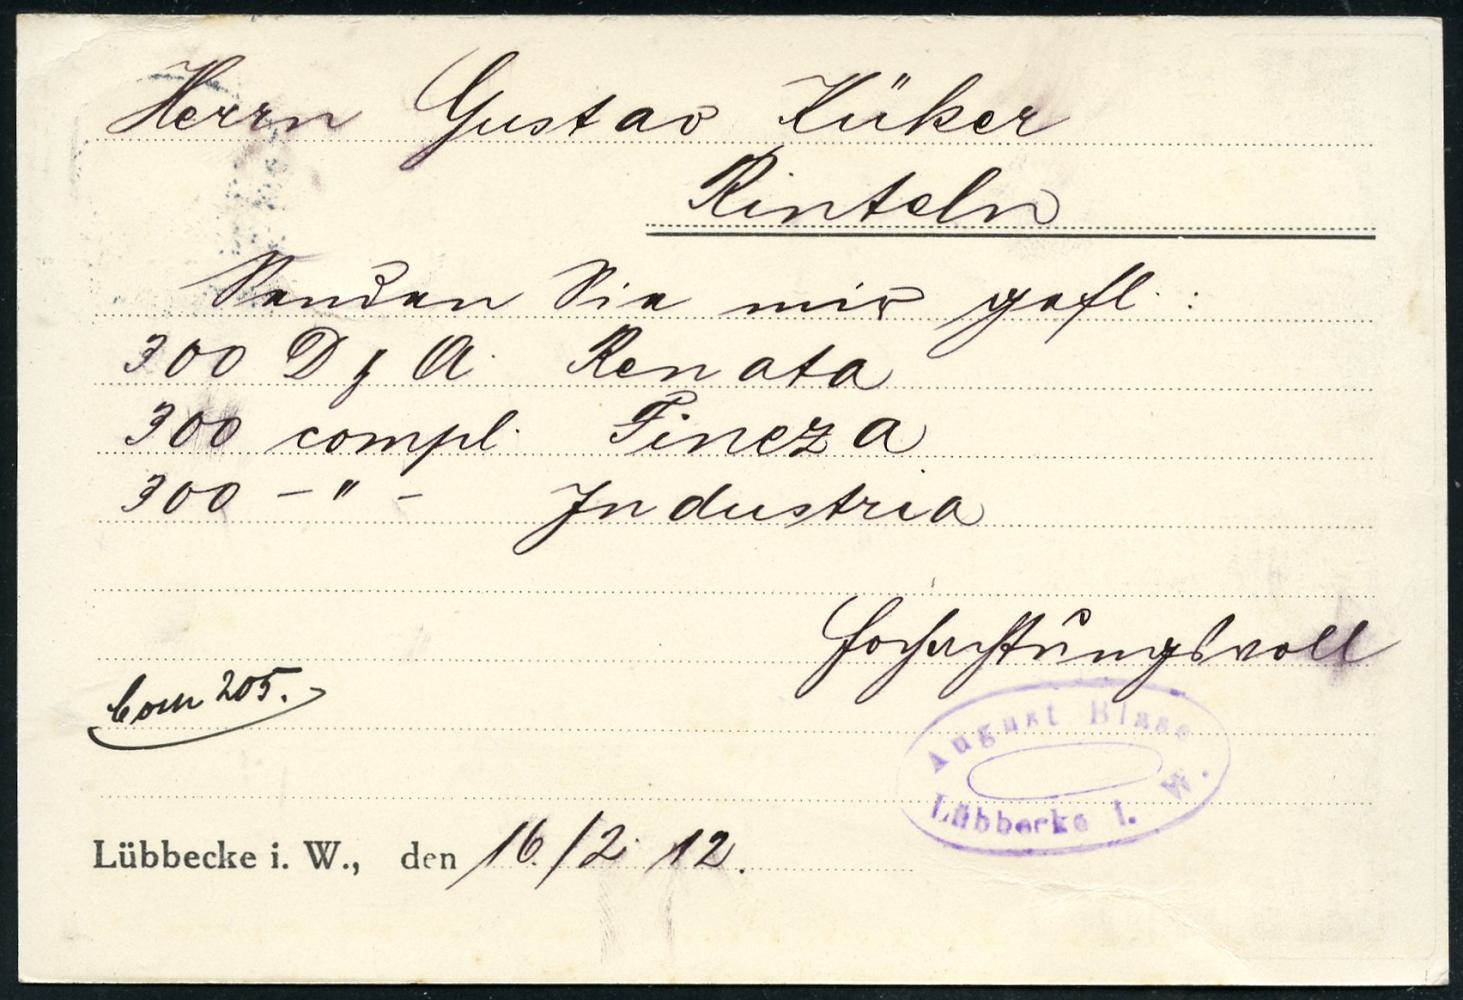 Herrn Gustav Küker
Rinteln
Senden Sie mir gefl. :
300 D & A. Renata
300 compl. Fineza
300 – " – Industria
Hochachtungsvoll
205.
August Blase
Lübbecke i. W.
Lübbecke i. W., den 16/2. 12.